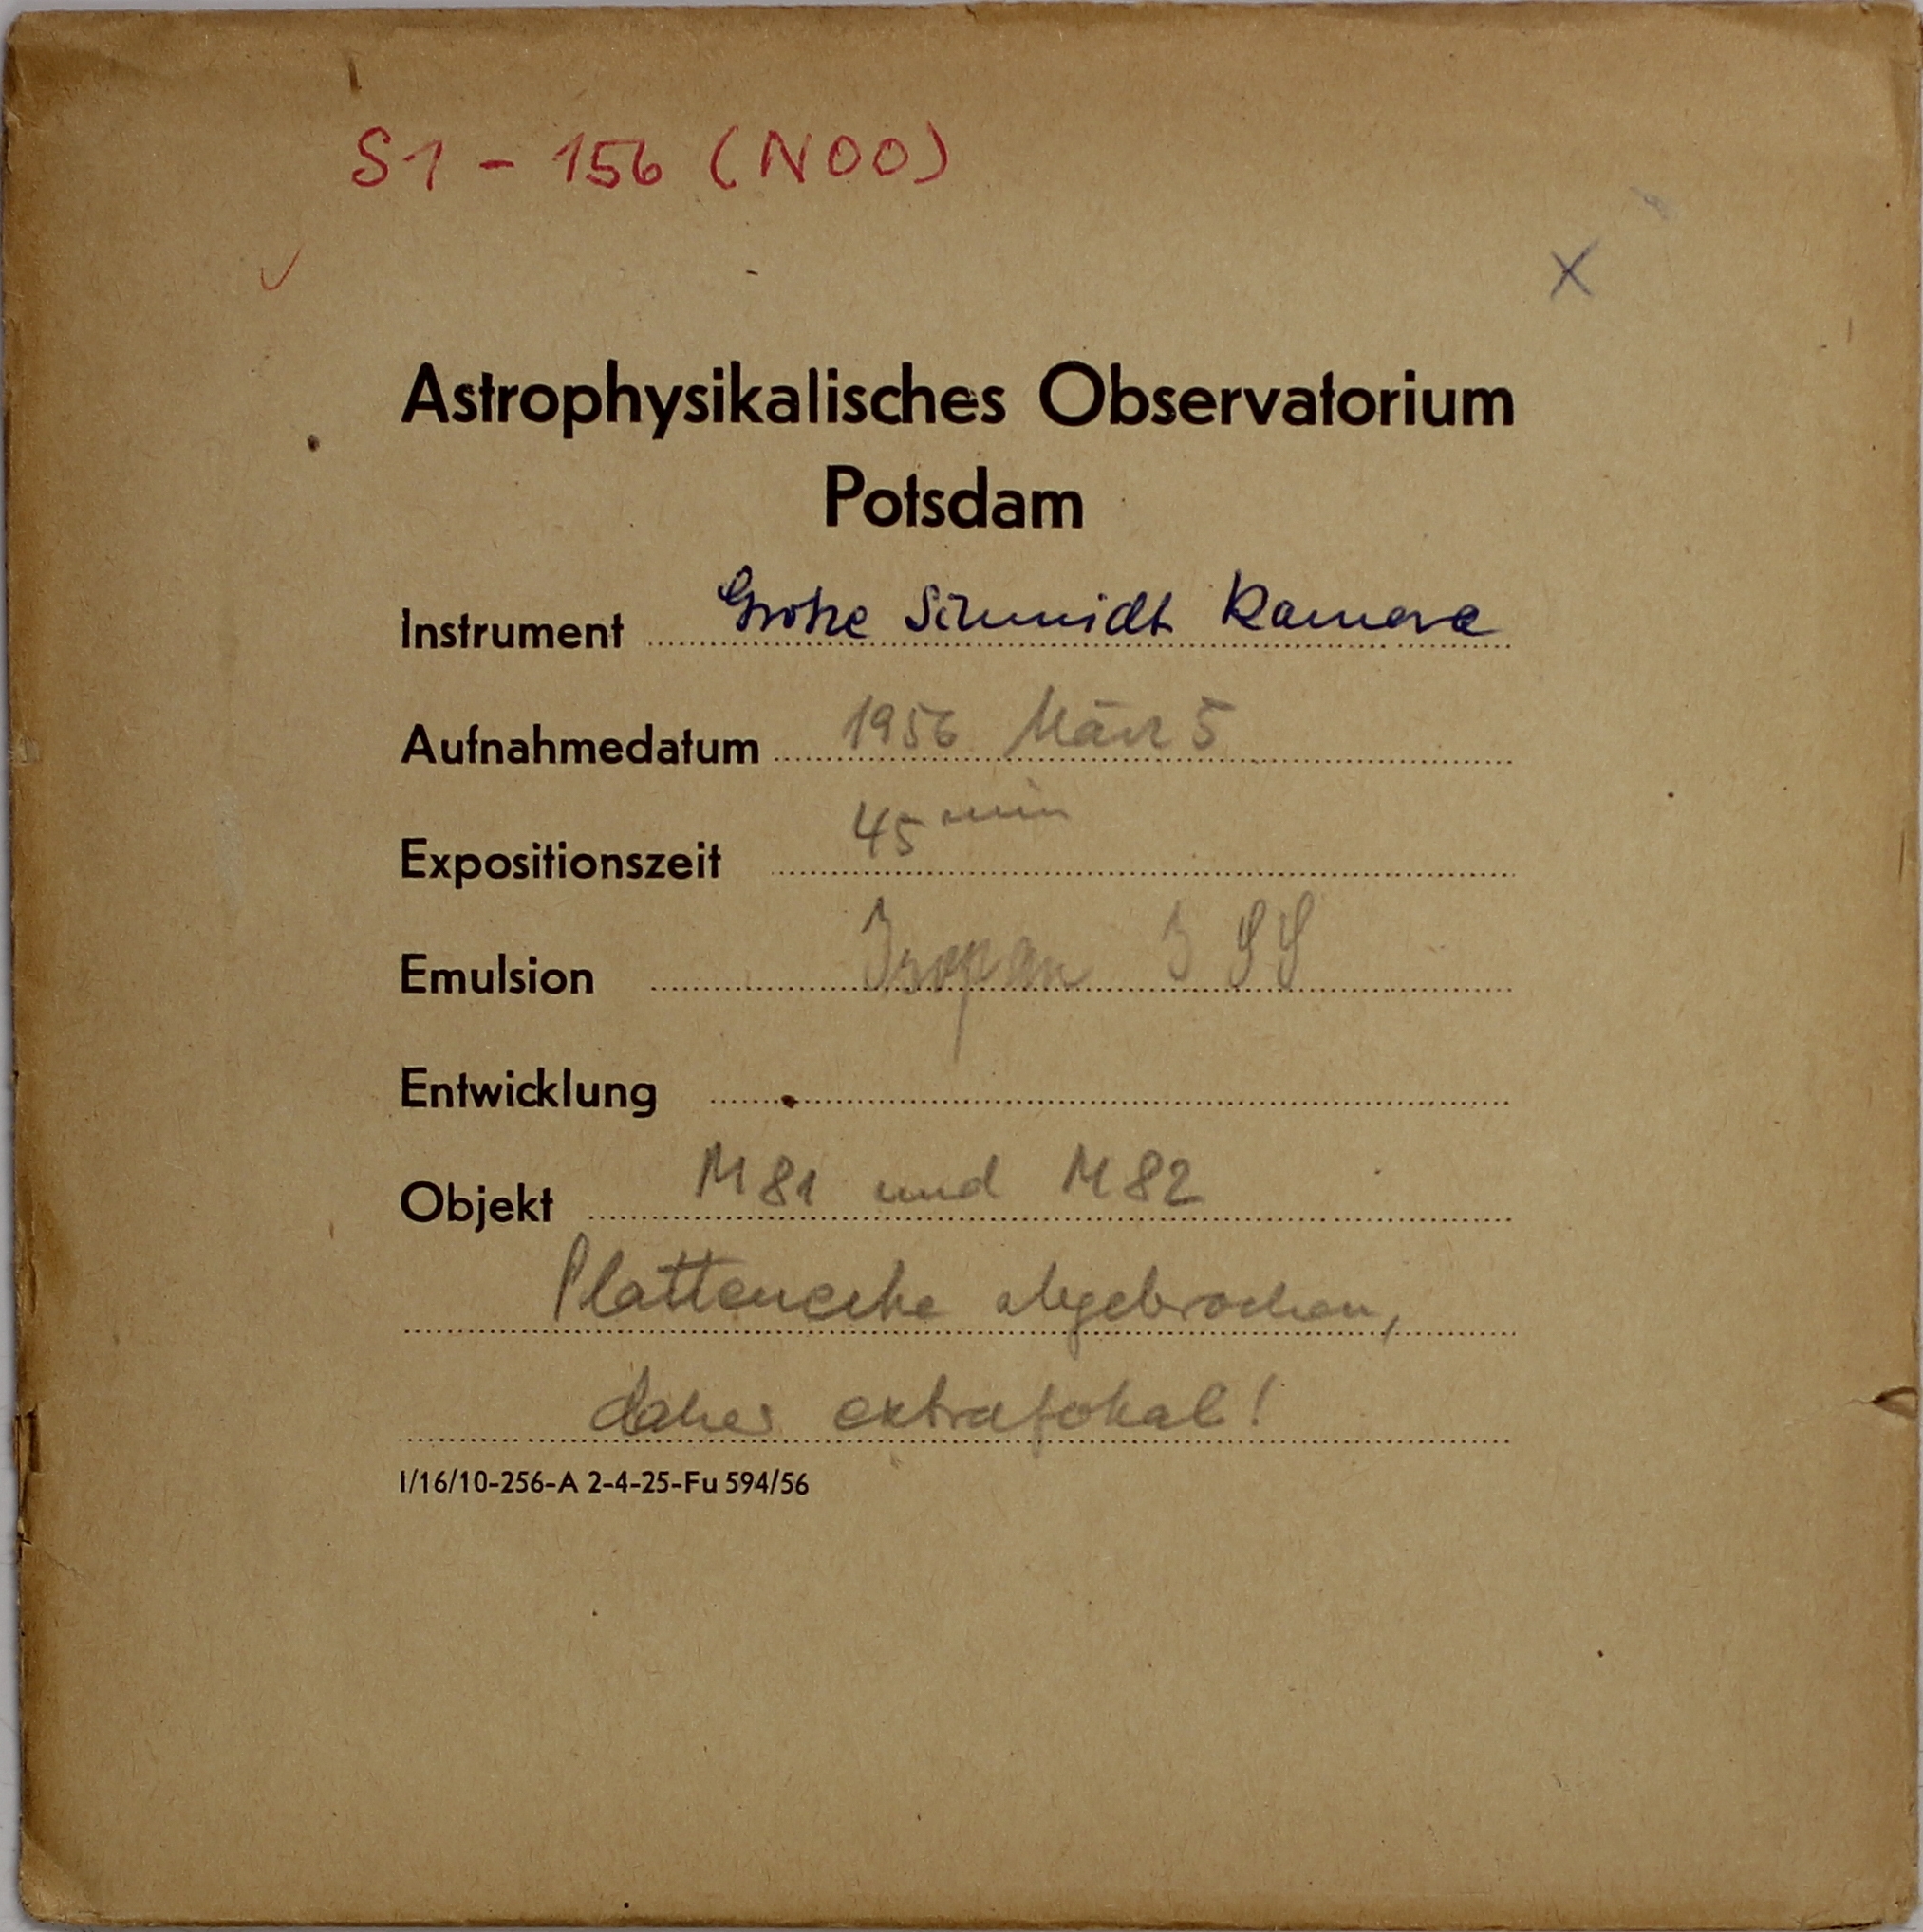 S1 - 156 (N00)
Astrophysikalisches Observatorium
Potsdam
Instrument Große Schmidt Kamera
Aufnahmedatum 1956 März 5
Expositionszeit 45 min
Emulsion Isopan ISS
Entwicklung
Objekt M81 und M82
Plattenecke abgebrochen,
daher extrafokal!
I/16/10-256-A 2-4-25-Fu 594/56